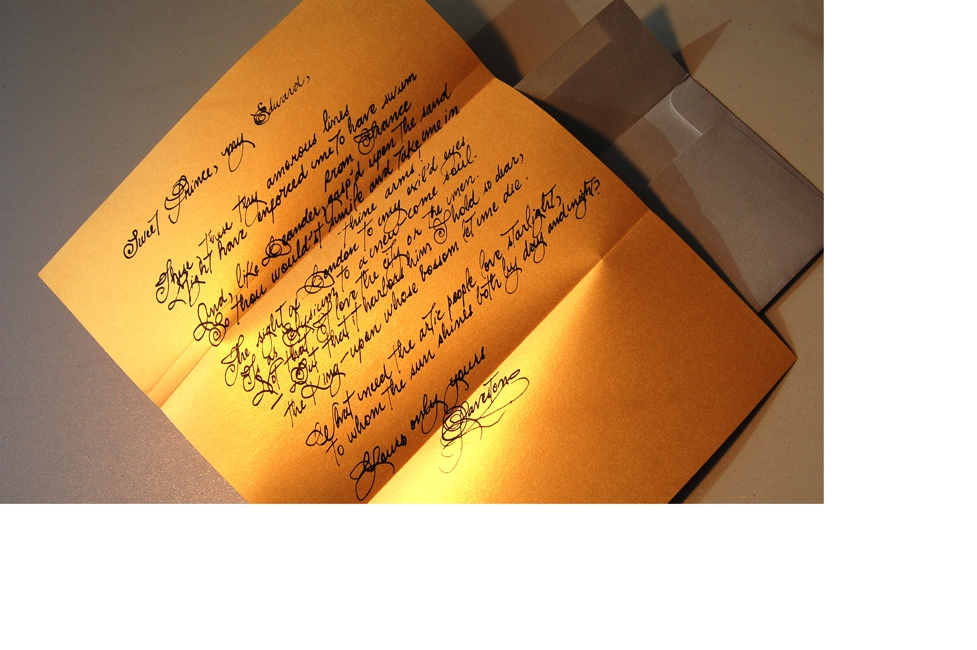 Sweet Prince, my Edward,
These thy amorous lines
Might have enforced me to have swum
from France
And, like Leander, gasp'd upon the sand
So thou would'st smile and take me in
thine arms!
The sight of London to my exil'd eyes
Is as Elysium to a new come soul.
Not that I love the city or the men.
But that it harbors him I hold so dear,
the King - upon whose bosom let me die.
What need the artic people love starlight,
To whom the sun shines both by day and night?
Yours only yours
Gaveston